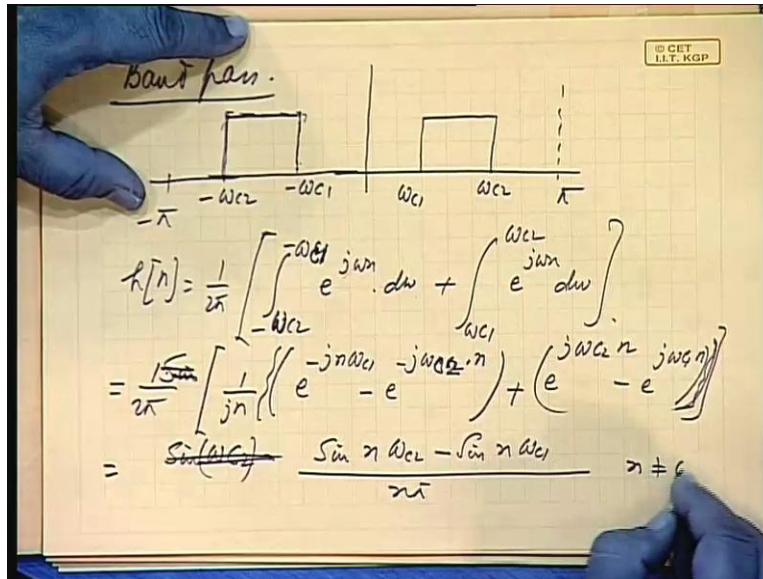 © CET
I.I.T. KGP
Band pass.
-π -ωc2 -ωc1 ωc1 ωc2 π
h[n] = 1/2π [ ∫_{-ωc2}^{-ωc1} e^{jωn} . dω + ∫_{ωc1}^{ωc2} e^{jωn} dω ].
= 1/2π [ 1/jn { ( e^{-jnωc1} - e^{-jωc2.n} ) + ( e^{jωc2 n} - e^{jωc1 n} ) } ]
= Sin n ωc2 - Sin n ωc1 / nπ n ≠